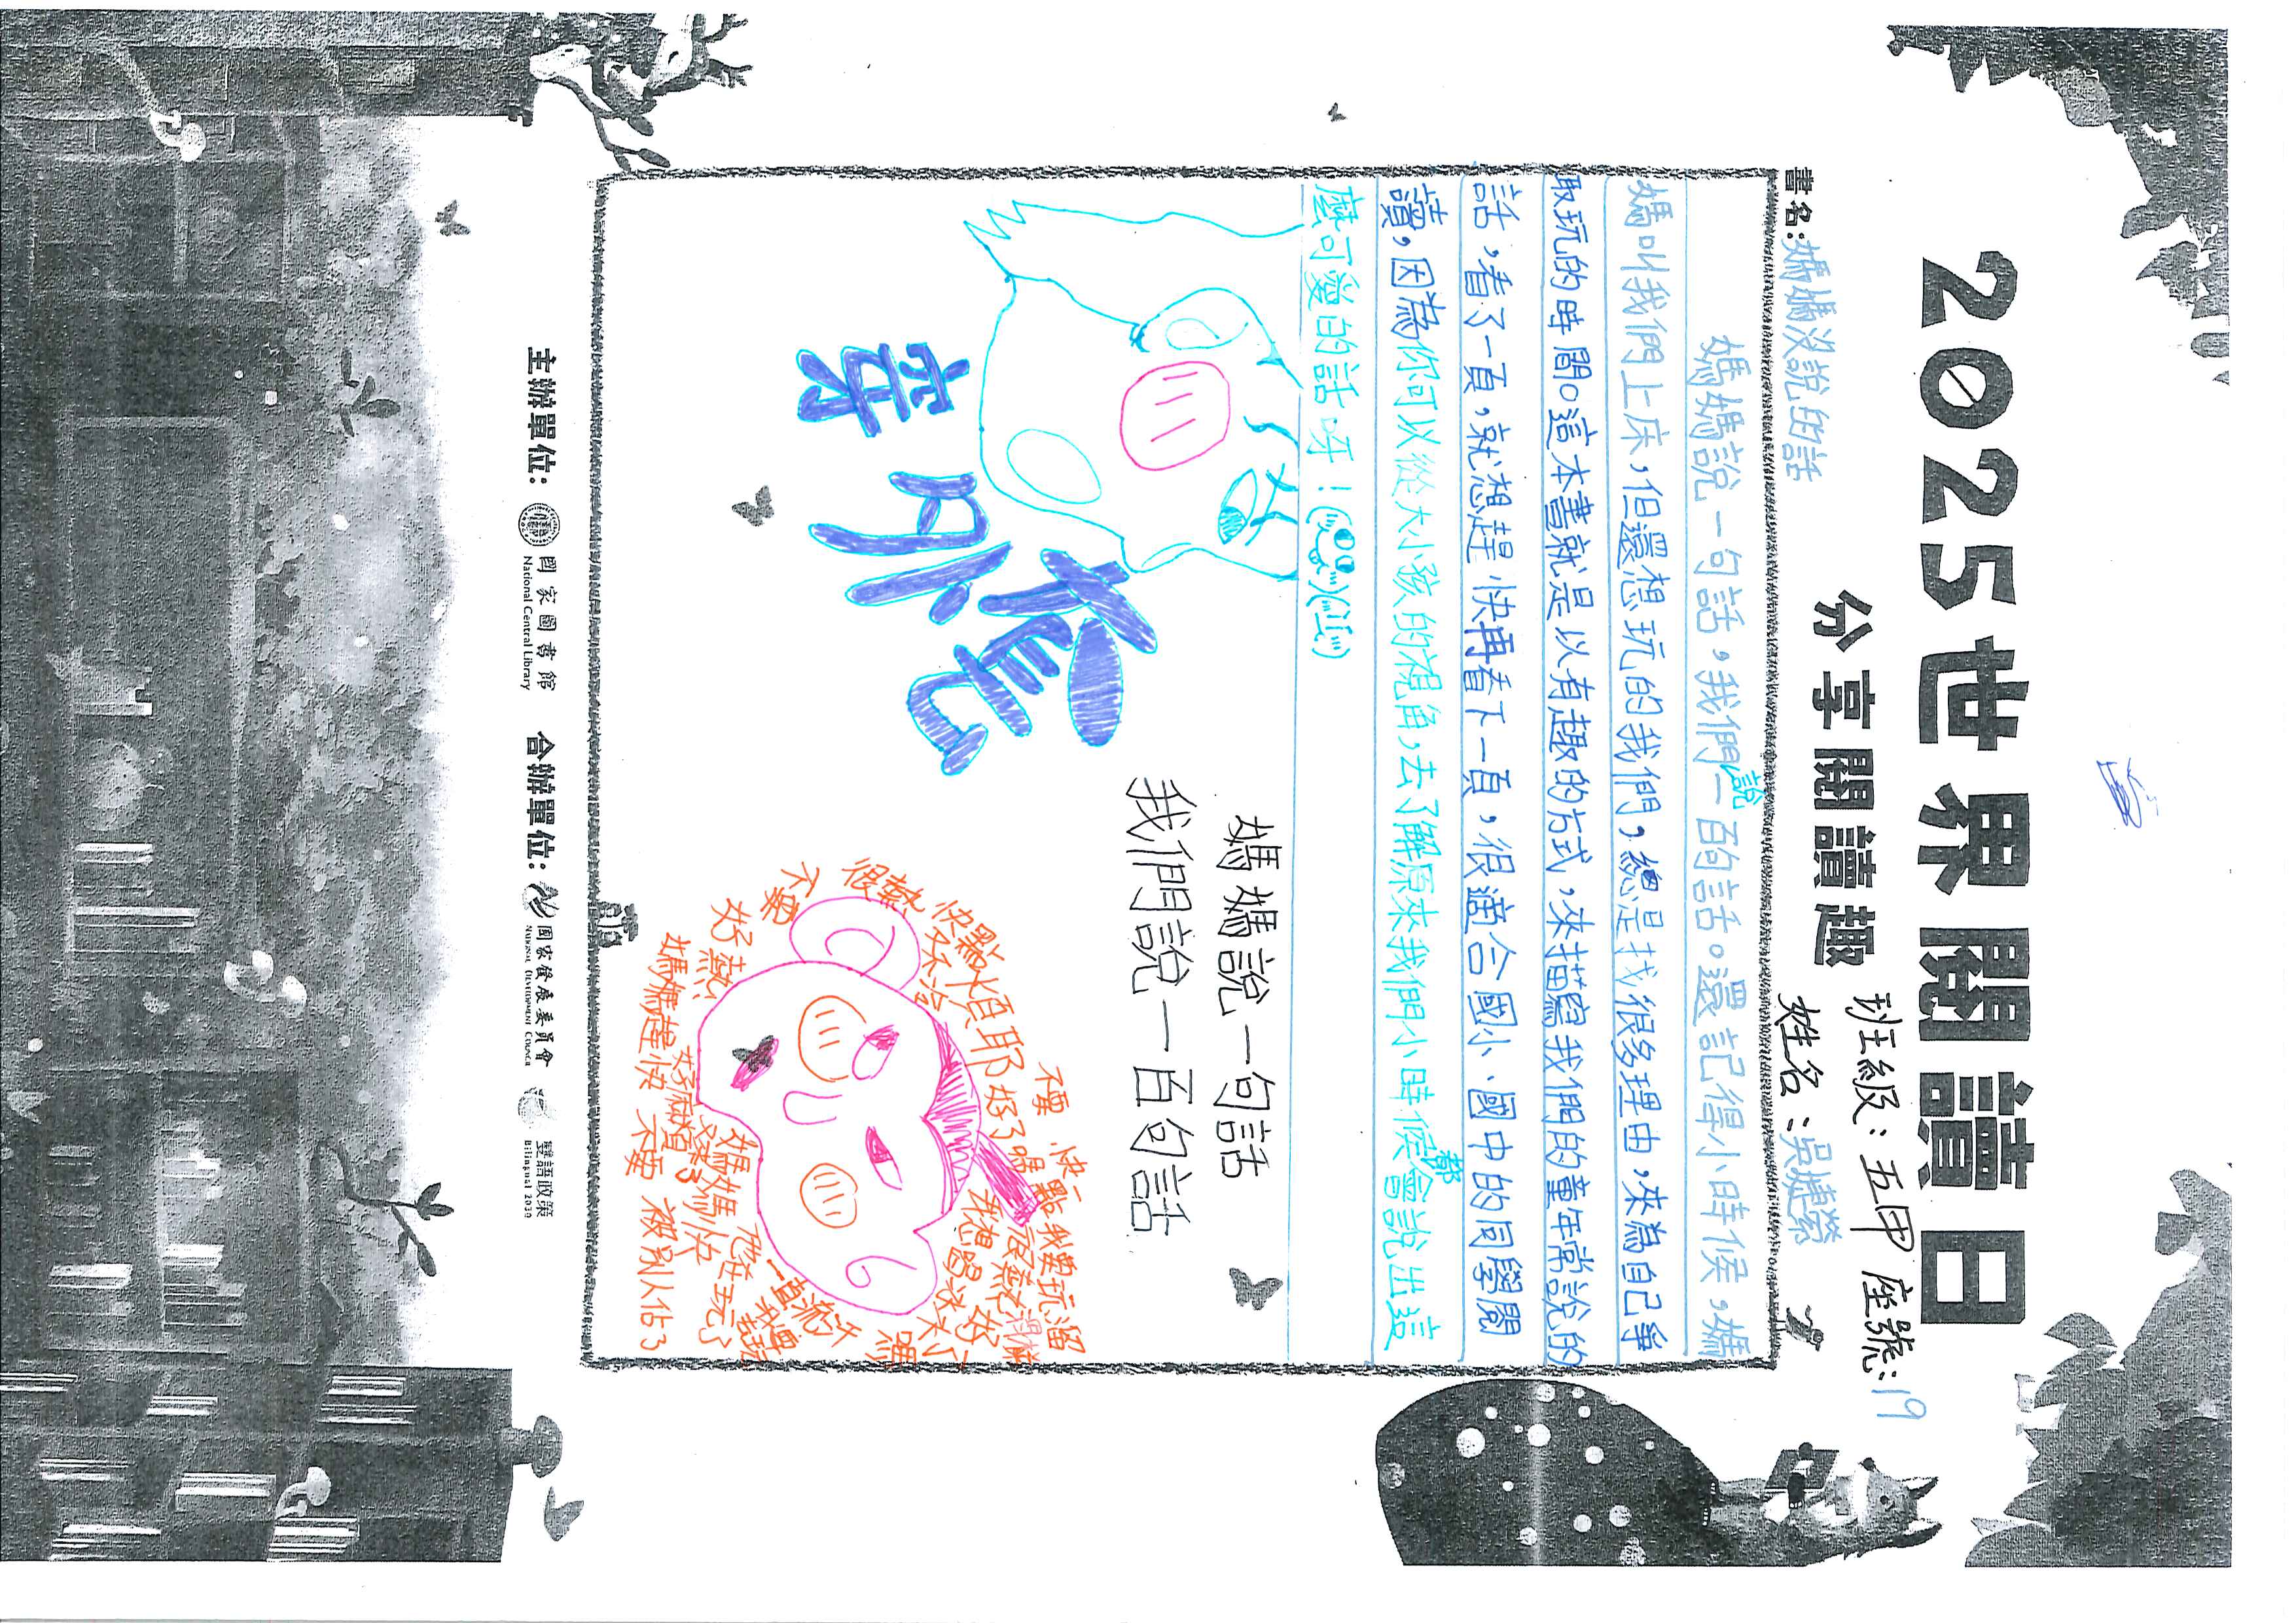 2025世界閱讀日
分享閱讀趣
班級：五甲 座號：19
書名：媽媽沒說的話
姓名：吳婕縈
媽媽說一句話，我們說一百句話。還記得小時候，媽
媽叫我們上床，但還想玩的我們，總是找很多理由，來為自己爭
取玩的時間。這本書就是以有趣的方式，來描寫我們的童年常說的
話，看了一頁，就想趕快再看下一頁，很適合國小、國中的同學閱
讀，因為你可以從大小孩的視角，去了解原來我們小時候都會說出這
麼可愛的話呀！
媽媽說一句話
我們說一百句話
不要
很熱
快點
好熱
不要
快一點
我要玩溜
好了嗎
我想喝冰水
嗎
一直流汗
媽媽趕快
媽媽快
他在玩了
不要
被別人佔了
主辦單位：
國家圖書館
National Central Library
合辦單位：
國家發展委員會
National Development Council
雙語政策
Bilingual 2030